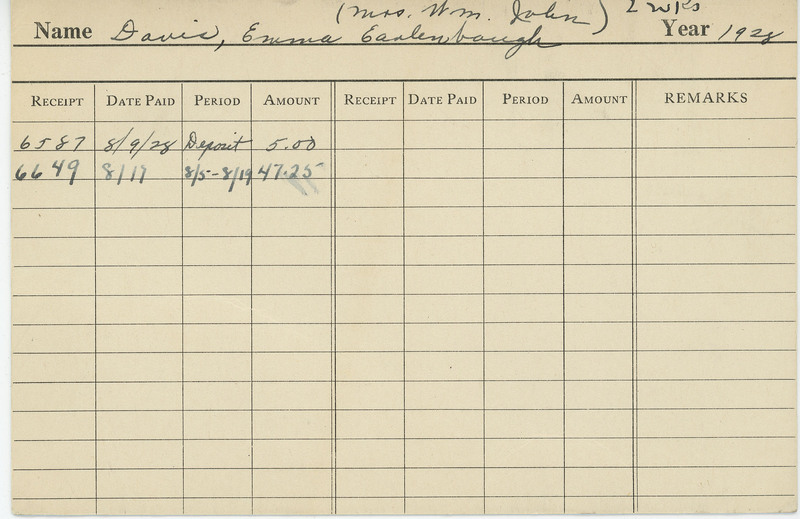 (Mrs. Wm. John) 2 wks
Name Davis, Emma Earlenbaugh Year 1928
RECEIPT DATE PAID PERIOD AMOUNT RECEIPT DATE PAID PERIOD AMOUNT REMARKS
6587 8/9/28 Deposit 5.00
6649 8/17 8/5-8/19 47.25